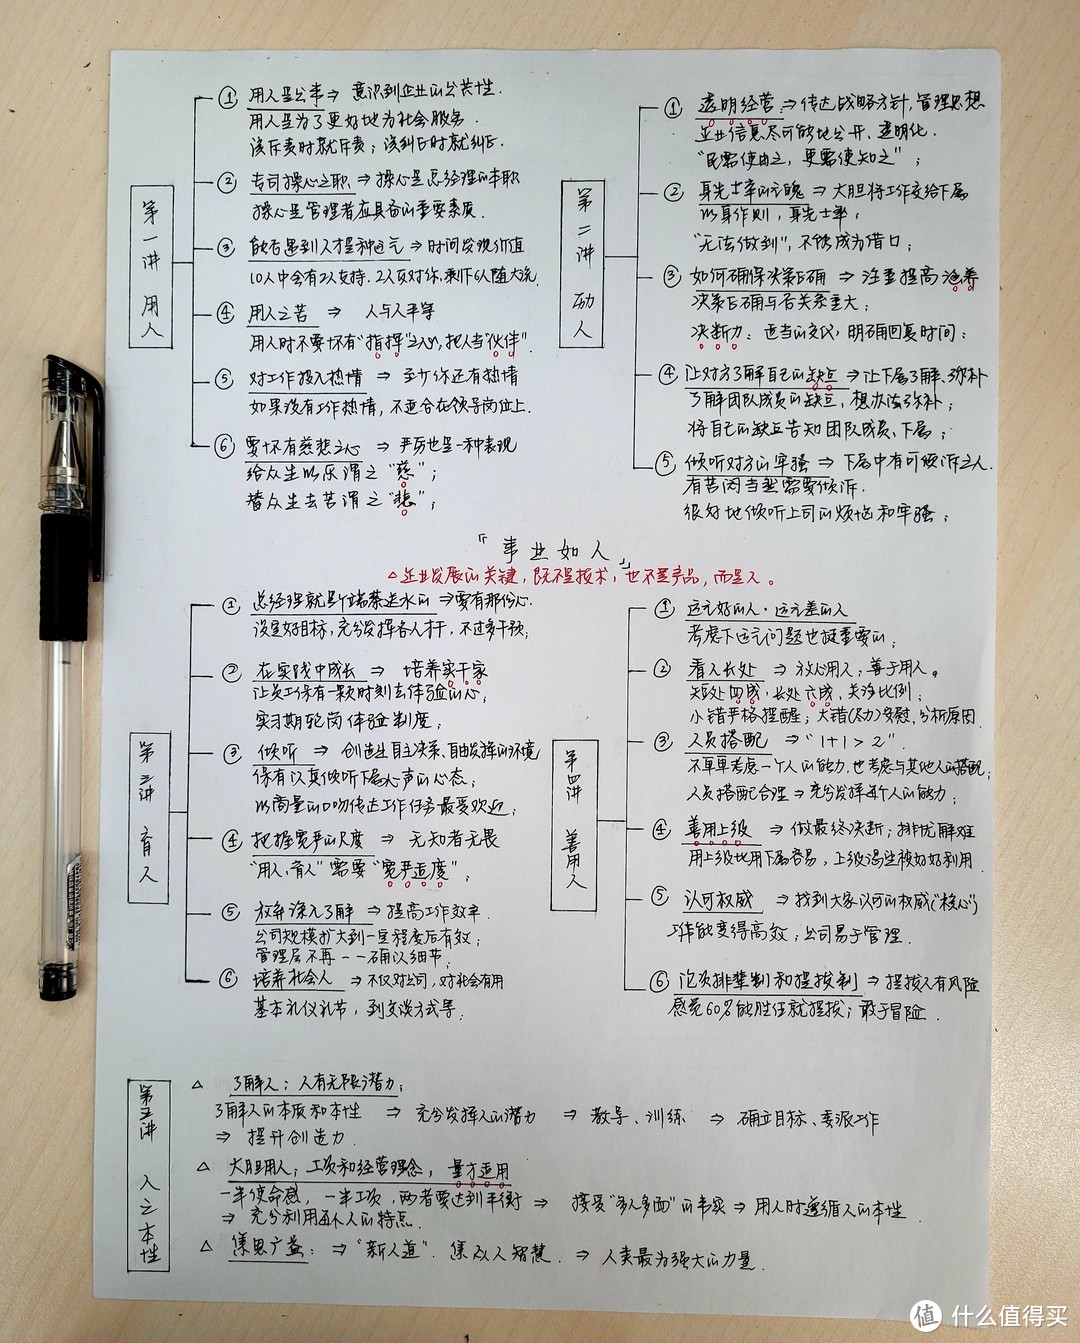 第一讲 用人
① 用人是公事⇒ 意识到企业的公共性.
用人是为了更好地为社会服务.
该斥责时就斥责；该纠正时就纠正.
② 专司操心之职⇒操心是总经理的本职
操心是管理者应具备的重要素质.
③ 能否遇到人才是种运气⇒时间发现价值
10人中会有2人支持.2人反对你,剩下6人随大流.
④ 用人之苦 ⇒ 人与人平等
用人时不要怀有"指挥"之心,把人当"伙伴".
⑤ 对工作投入热情 ⇒ 至少你还有热情
如果没有工作热情,不适合在领导岗位上.
⑥ 要怀有慈悲之心 ⇒ 严厉也是一种表现
给众生以乐谓之"慈"；
替众生去苦谓之"悲"；
第二讲 励人
① 透明经营⇒传达战略方针,管理思想
企业信息尽可能地公开、透明化.
"民需使由之，更需使知之"；
② 身先士卒的气魄 ⇒ 大胆将工作交给下属
以身作则，身先士卒；
"无法做到",不能成为借口；
③ 如何确保决策正确 ⇒ 注重提高涵养
决策正确与否关系重大；
决断力：适当的交代，明确回复时间；
④ 让对方了解自己的缺点⇒让下属了解、弥补
了解团队成员的缺点，想办法弥补；
将自己的缺点告知团队成员、下属；
⑤ 倾听对方的牢骚 ⇒ 下属中有可倾诉之人.
有苦闷当然需要倾诉.
很好地倾听上司的烦恼和牢骚；
『事业如人』
△企业发展的关键，既不是技术，也不是产品，而是人。
第三讲 育人
① 总经理就是个端茶送水的⇒要有那份心.
设定好目标,充分发挥各人才干,不过多干预；
② 在实践中成长 ⇒ 培养实干家
让员工保有一颗时刻去体验的心；
实习期轮岗体验制度；
③ 倾听 ⇒ 创造出自主决策、自由发挥的环境
保有认真倾听下属心声的心态；
以商量的口吻传达工作任务最受欢迎；
④ 把握宽严的尺度 ⇒ 无知者无畏
"用人、育人"需要"宽严适度"；
⑤ 放弃深入了解 ⇒ 提高工作效率
公司规模扩大到一定程度后有效；
管理层不再一一确认细节；
⑥ 培养社会人 ⇒ 不仅对公司,对社会有用
基本礼仪礼节，到交谈方式等.
第四讲 善用人
① 运气好的人.运气差的人
考虑下运气问题也挺重要的；
② 看人长处 ⇒ 放心用人，善于用人。
短处四成，长处六成，关注比例；
小错严格提醒；大错(尽力)安慰,分析原因
③ 人员搭配 ⇒ "1+1>2".
不单单考虑一个人的能力,也考虑与其他人的搭配；
人员搭配合理⇒充分发挥每个人的能力；
④ 善用上级 ⇒ 做最终决断；排忧解难
用上级比用下属容易，上级渴望被好好利用.
⑤ 认可权威 ⇒ 找到大家认可的权威("核心")
工作能变得高效；公司易于管理.
⑥ 论资排辈制和提拔制⇒提拔人有风险
感觉60%能胜任就提拔；敢于冒险.
第五讲 人之本性
△ 了解人；人有无限潜力；
了解人的本质和本性 ⇒ 充分发挥人的潜力 ⇒ 教导、训练 ⇒ 确立目标、委派工作
⇒ 提升创造力.
△ 大胆用人；工资和经营理念，量才适用
一半使命感，一半工资，两者要达到平衡 ⇒ 接受"多人多面"的事实⇒用人时遵循人的本性.
⇒ 充分利用每个人的特点.
△ 集思广益：⇒ "新人道". 集众人智慧. ⇒ 人类最为强大的力量.
值 什么值得买